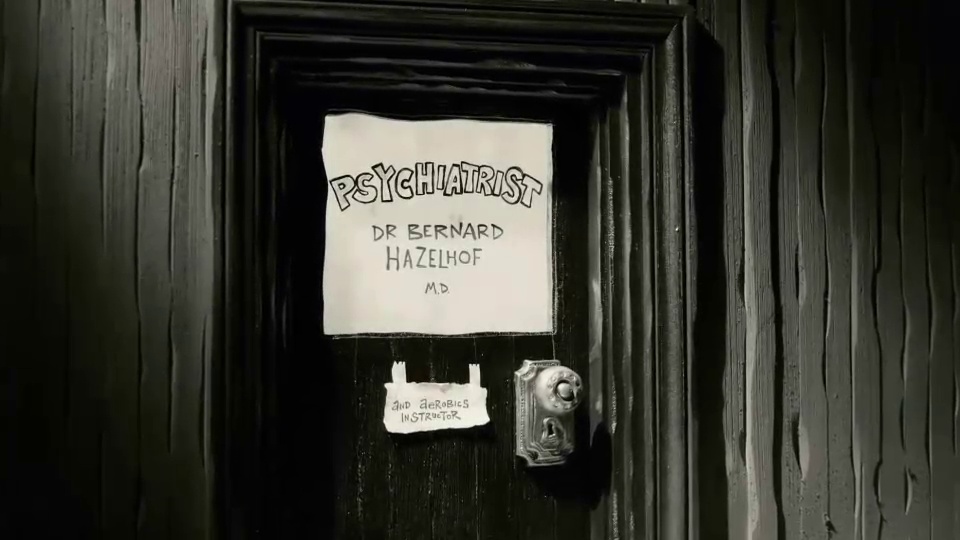 PSYCHIATRIST
DR BERNARD
HAZELHOF
M.D.
AND AEROBICS
INSTRUCTOR